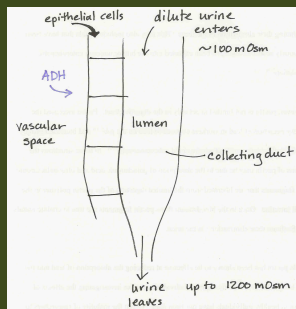 epithelial cells
dilute urine
enters
~100 mOsm
ADH
vascular
space
lumen
collecting duct
urine
leaves
up to 1200 mOsm